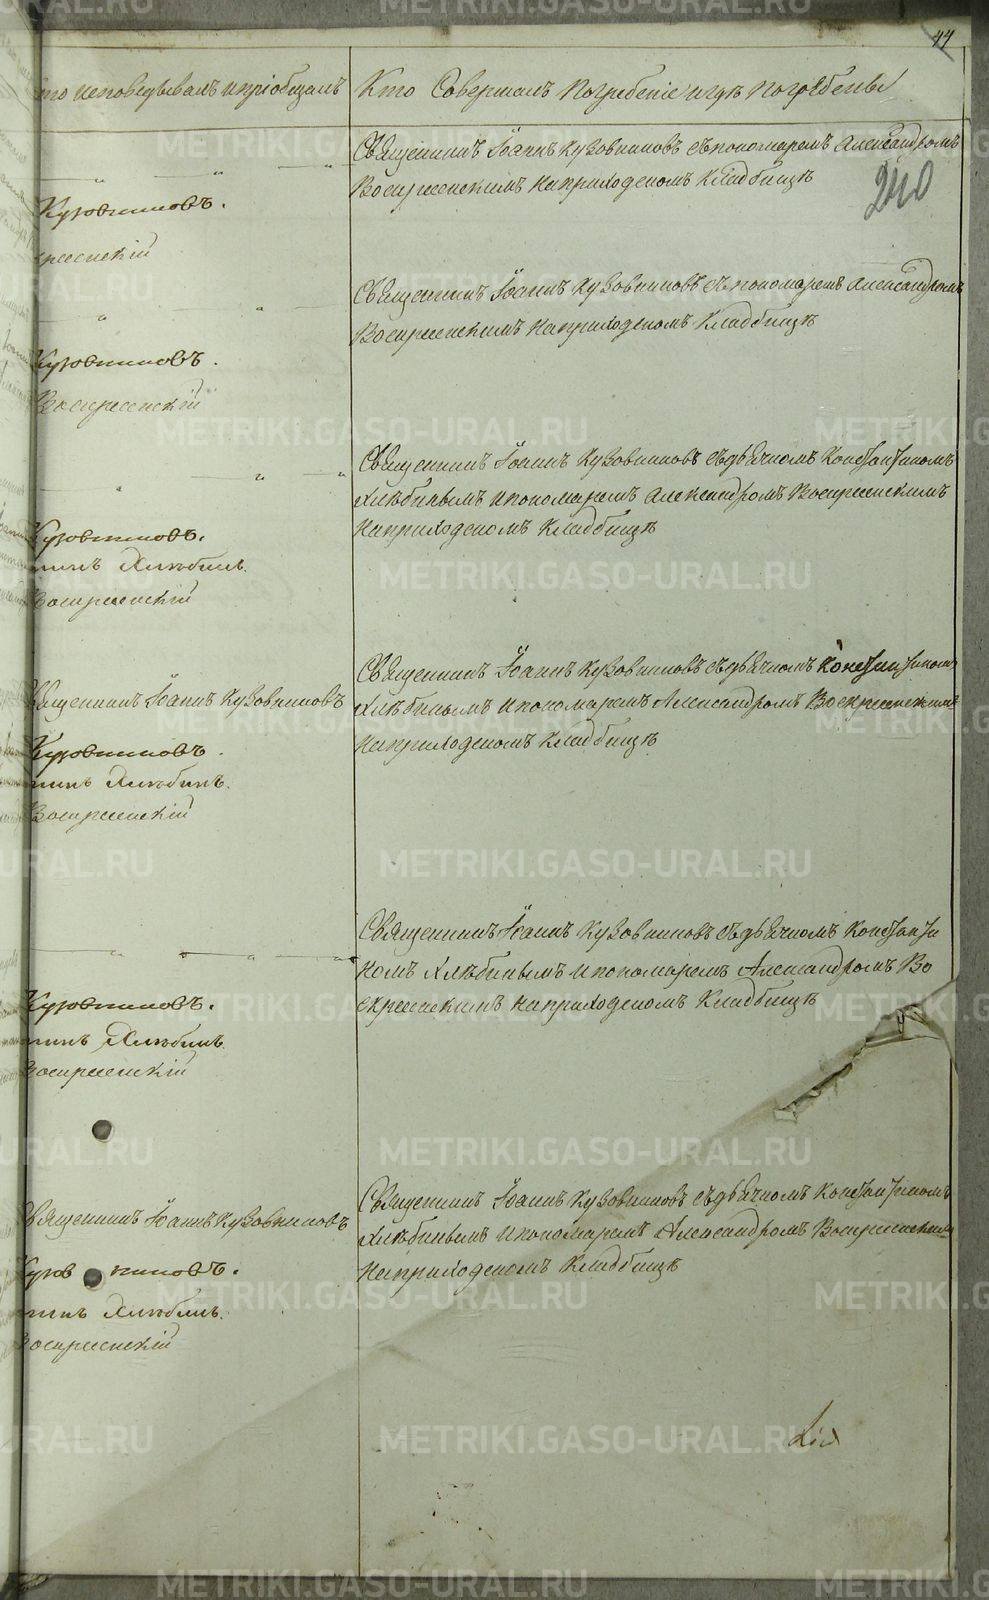 44
Кто исповедывалъ и пріобщалъ
Кто Совершалъ Погребеніе и гдѣ Погребены
Священникъ Іоаннъ Кузовниковъ съ пономаремъ Александромъ
Воскресенскимъ На приходскомъ Кладбищѣ
240
Кузовниковъ.
кресенскій
Священникъ Іоаннъ Кузовниковъ съ пономаремъ Александромъ
Воскресенскимъ На приходскомъ Кладбищѣ
Кузовниковъ.
Воскресенскій
Священникъ Іоаннъ Кузовниковъ съ дьячкомъ Константиномъ
Хлѣбинымъ и пономаремъ Александромъ Воскресенскимъ
На приходскомъ Кладбищѣ
Кузовниковъ.
тинъ Хлѣбинъ.
Воскресенскій
Священникъ Іоаннъ Кузовниковъ съ дьячкомъ Константиномъ
Хлѣбинымъ и пономаремъ Александромъ Воскресенскимъ
На приходскомъ Кладбищѣ
Священникъ Іоаннъ Кузовниковъ
Кузовниковъ.
тинъ Хлѣбинъ.
Воскресенскій
Священникъ Іоаннъ Кузовниковъ съ дьячкомъ Константи
номъ Хлѣбинымъ и пономаремъ Александромъ Во
скресенскимъ На приходскомъ Кладбищѣ
Кузовниковъ.
тинъ Хлѣбинъ.
Воскресенскій
Священникъ Іоаннъ Кузовниковъ съ дьячкомъ Константиномъ
Хлѣбинымъ и пономаремъ Александромъ Воскресенскимъ
На приходскомъ Кладбищѣ
Священникъ Іоаннъ Кузовниковъ
Кузовниковъ.
тинъ Хлѣбинъ.
Воскресенскій
METRIKI.GASO-URAL.RU